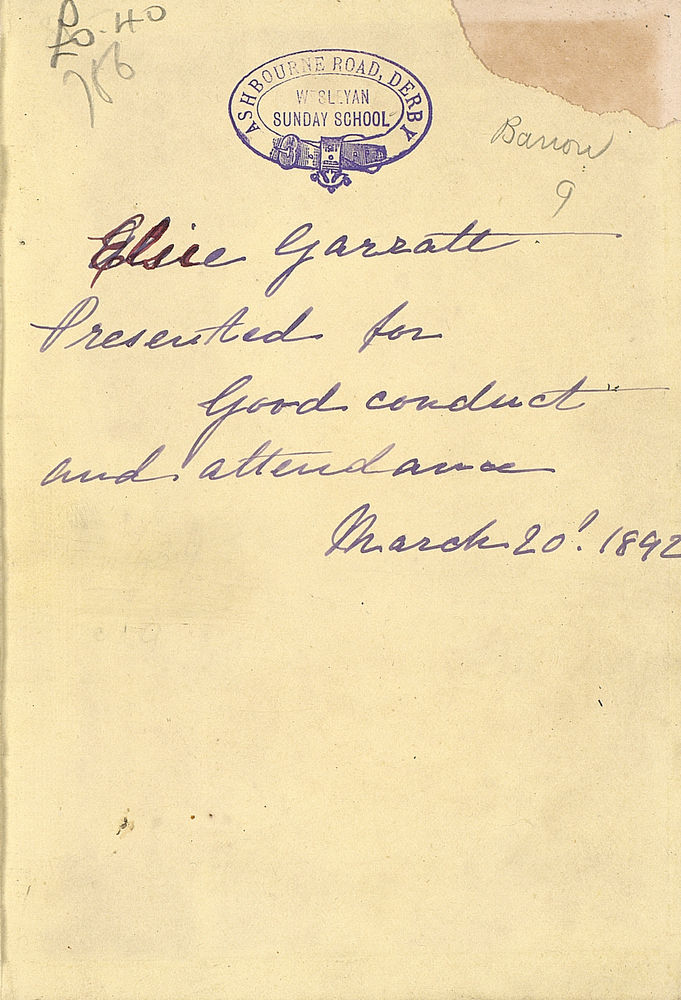 £0.40
786
ASHBOURNE ROAD, DERBY
WESLEYAN
SUNDAY SCHOOL
Barrow
9
Elsie Garratt
Presented for
Good conduct
and attendance
March 20! 1892